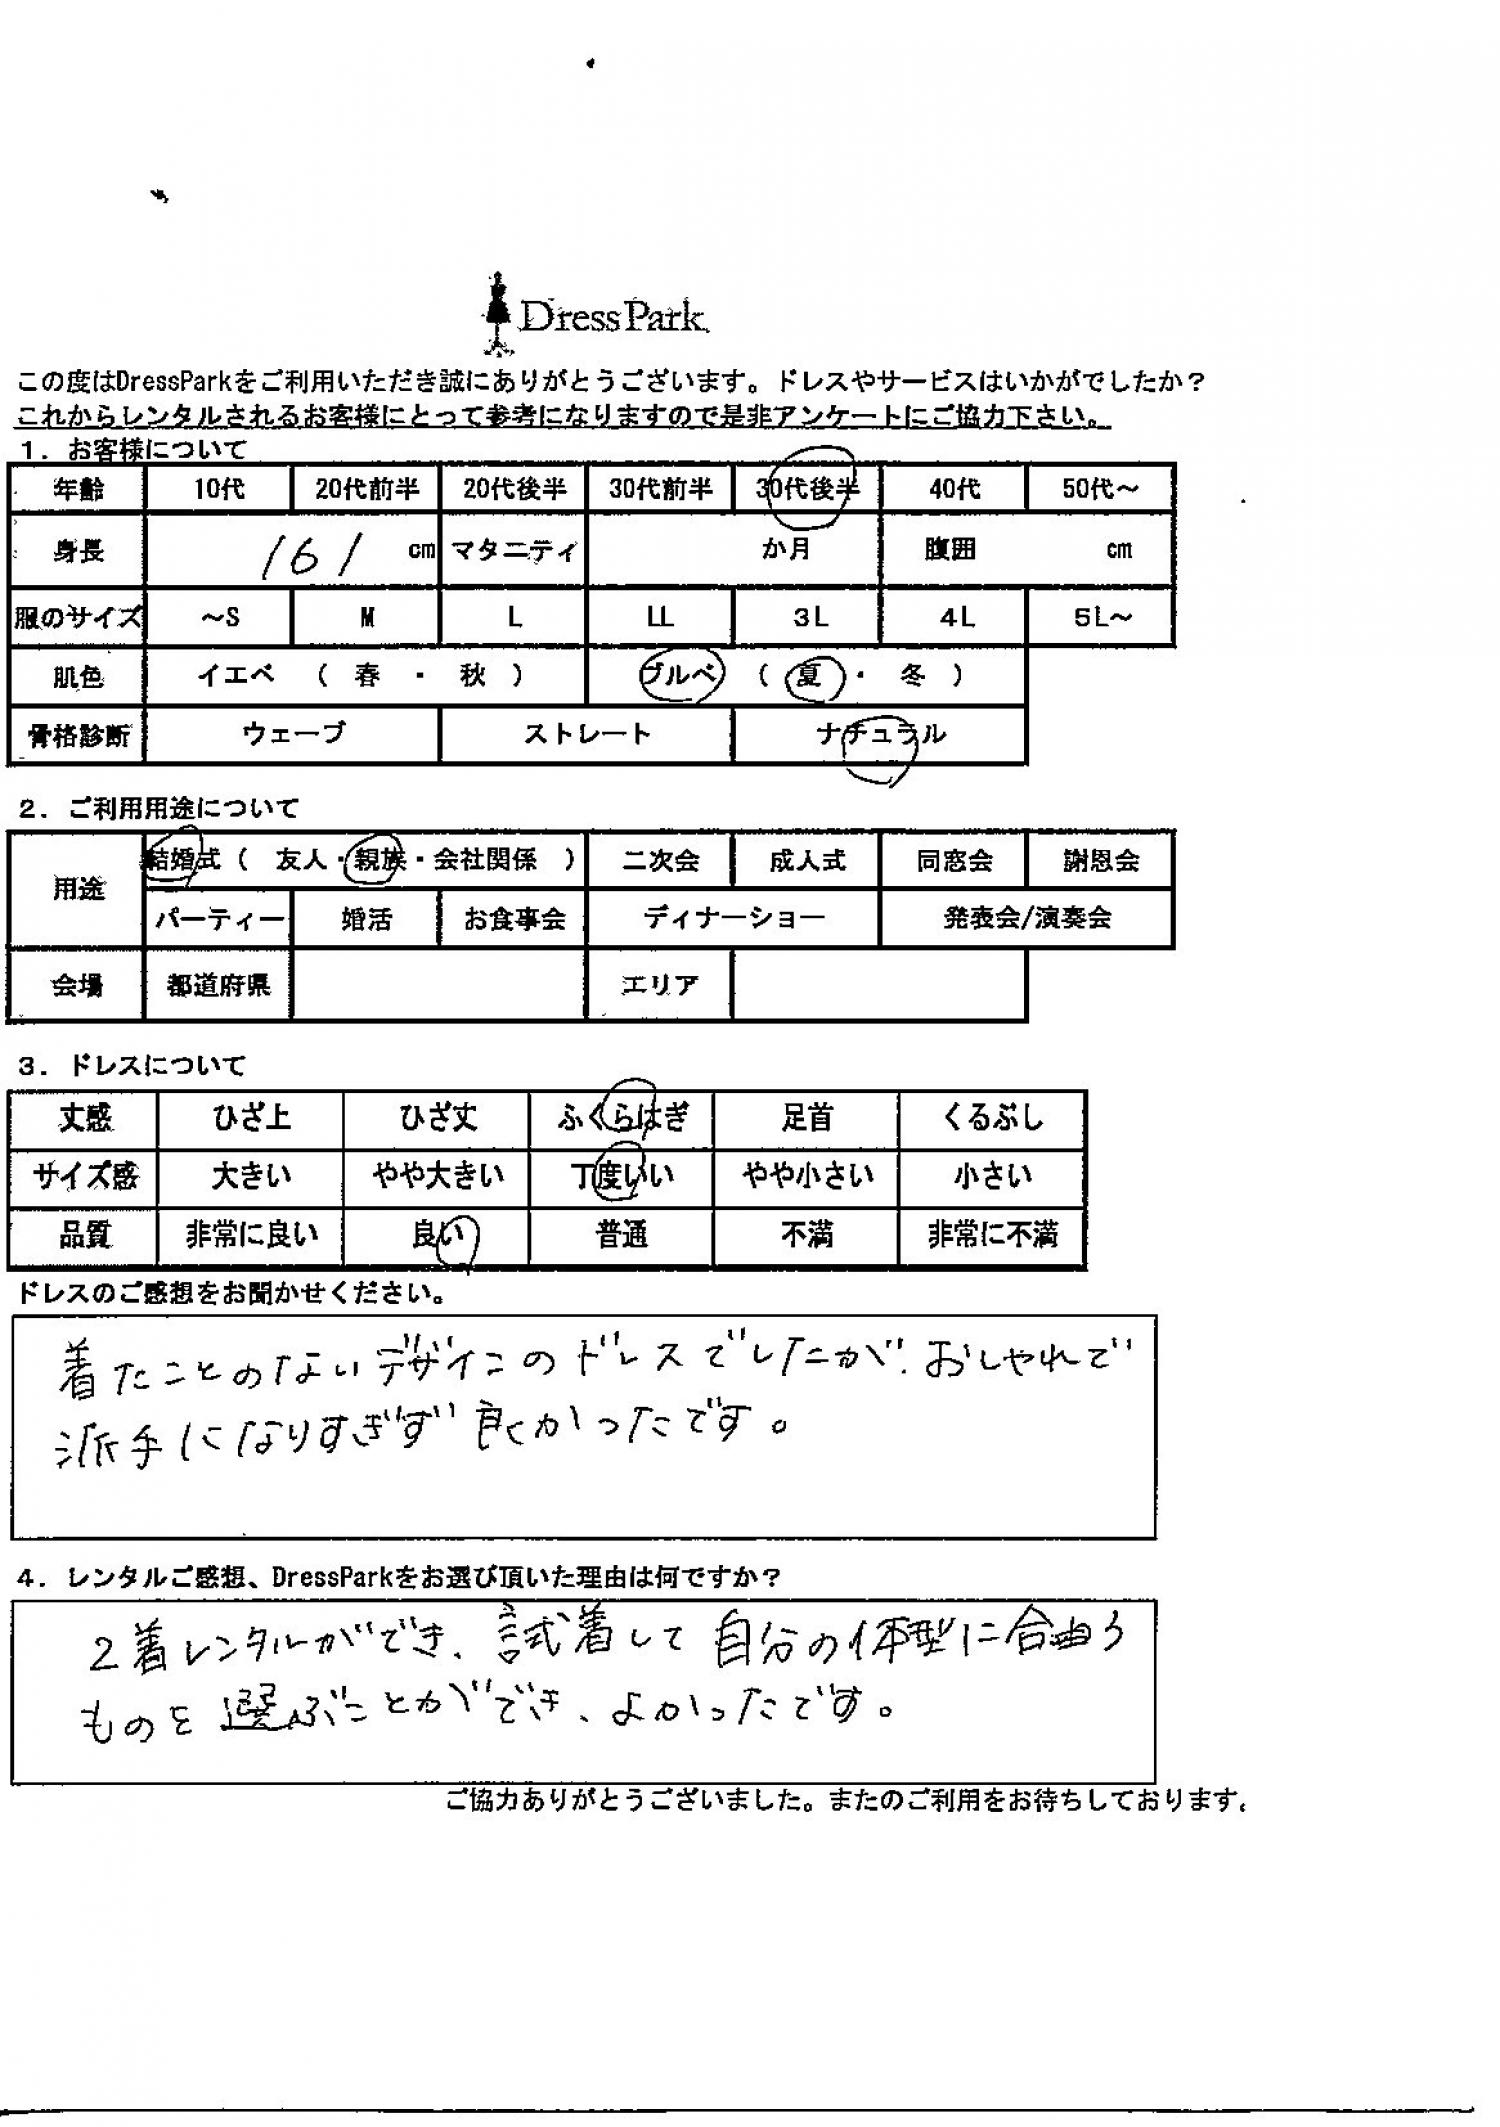 DressPark
この度はDressParkをご利用いただき誠にありがとうございます。ドレスやサービスはいかがでしたか？
これからレンタルされるお客様にとって参考になりますので是非アンケートにご協力下さい。
１．お客様について
年齢 10代 20代前半 20代後半 30代前半 30代後半 40代 50代～
身長 161 cm マタニティ か月 腹囲 cm
服のサイズ ～S M L LL 3L 4L 5L～
肌色 イエベ （ 春 ・ 秋 ） ブルベ （ 夏 ・ 冬 ）
骨格診断 ウェーブ ストレート ナチュラル
２．ご利用用途について
用途 結婚式（ 友人・親族・会社関係 ） 二次会 成人式 同窓会 謝恩会
パーティー 婚活 お食事会 ディナーショー 発表会/演奏会
会場 都道府県 エリア
３．ドレスについて
丈感 ひざ上 ひざ丈 ふくらはぎ 足首 くるぶし
サイズ感 大きい やや大きい 丁度いい やや小さい 小さい
品質 非常に良い 良い 普通 不満 非常に不満
ドレスのご感想をお聞かせください。
着たことのないデザインのドレスでしたが、おしゃれで
派手になりすぎず良かったです。
４．レンタルご感想、DressParkをお選び頂いた理由は何ですか？
2着レンタルができ、試着して自分の体型に合う
ものを選ぶことができ、よかったです。
ご協力ありがとうございました。またのご利用をお待ちしております。